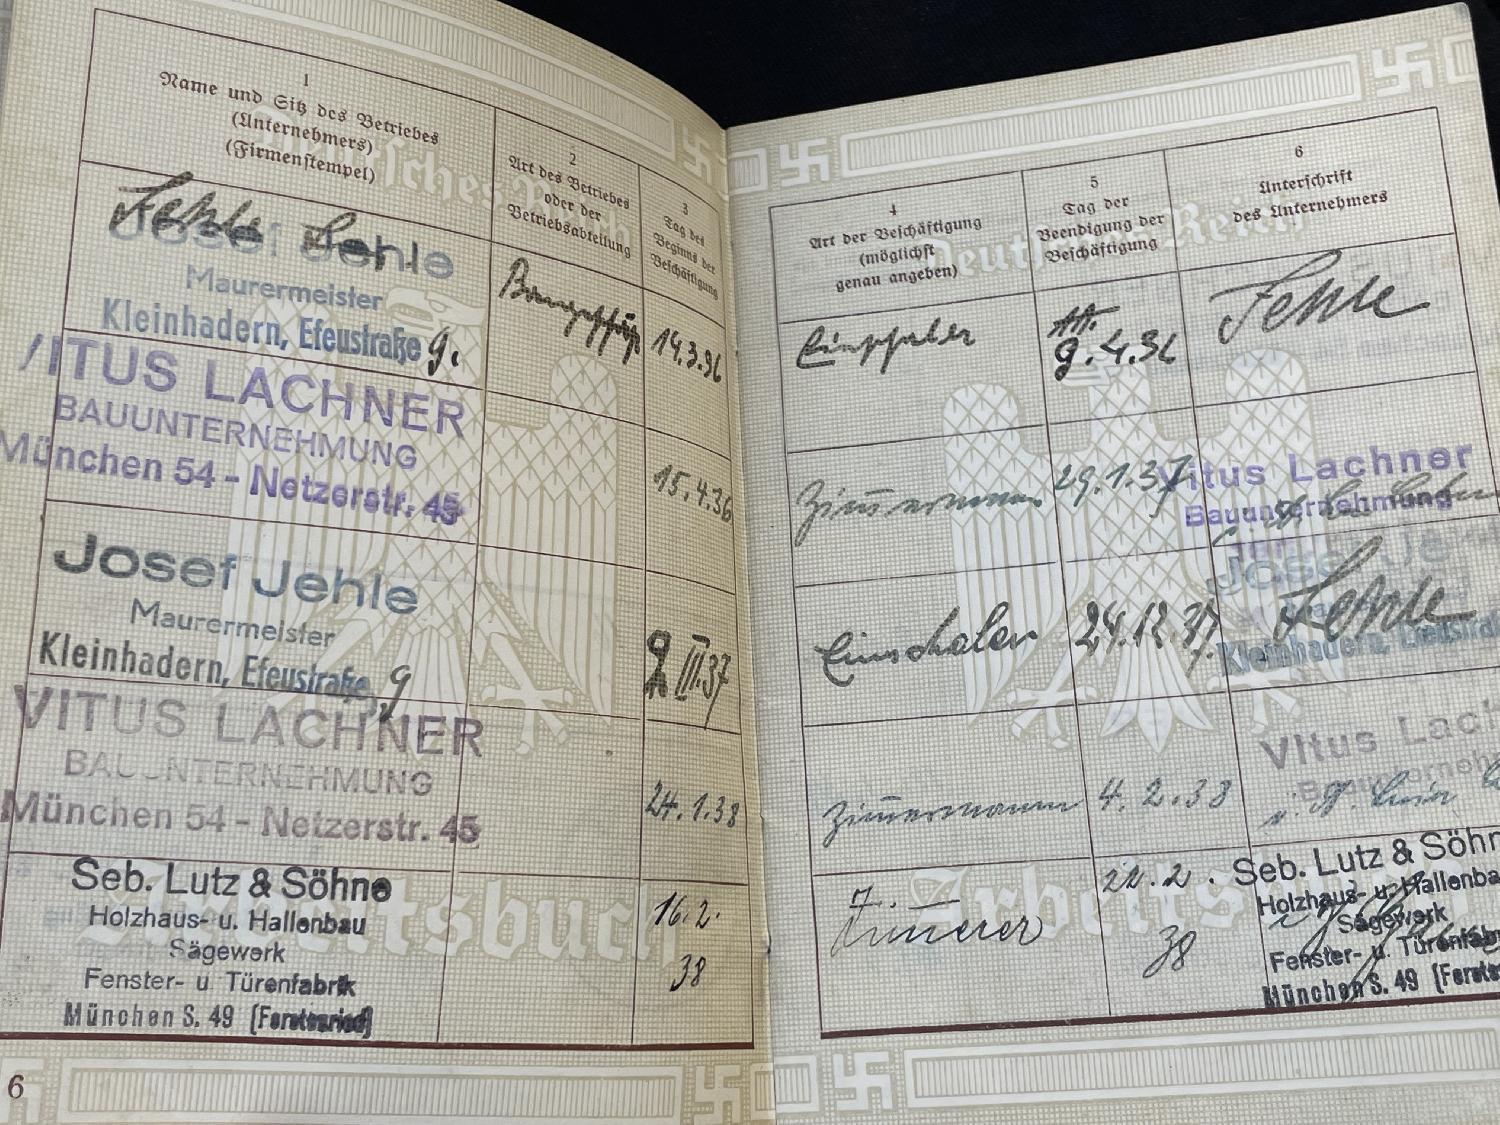 1
Name und Sitz des Betriebes
(Unternehmers)
(Firmenstempel)
2
Art des Betriebes
oder der
Betriebsabteilung
3
Tag des
Beginns der
Beschäftigung
Josef Jehle
Maurermeister
Kleinhadern, Efeustraße 9.
14.3.36
VITUS LACHNER
BAUUNTERNEHMUNG
München 54 - Netzerstr. 45
15.4.36
Josef Jehle
Maurermeister
Kleinhadern, Efeustraße 9
III.37
VITUS LACHNER
BAUUNTERNEHMUNG
München 54 - Netzerstr. 45
24.1.38
Seb. Lutz & Söhne
Holzhaus- u. Hallenbau
Sägewerk
Fenster- u. Türenfabrik
München S. 49 (Forstenried)
16.2.
38
Deutsches Reich
Arbeitsbuch
6
4
Art der Beschäftigung
(möglichst
genau angeben)
5
Tag der
Beendigung der
Beschäftigung
6
Unterschrift
des Unternehmers
9.4.36
Jehle
Zimmermann
29.1.37
Vitus Lachner
Bauunternehmung
Einschaler
24.12.37.
Josef Je
Jehle
Kleinhadern, Efeustraße
Zimmermann
4.2.38
Vitus Lach
Bauunterneh
22.2.
38
Seb. Lutz & Söhn
Holzhaus- u. Hallenba
Sägewerk
Fenster- u. Türenfab
München S. 49 (Forste
Deutsches Reich
Arbeitsbuch